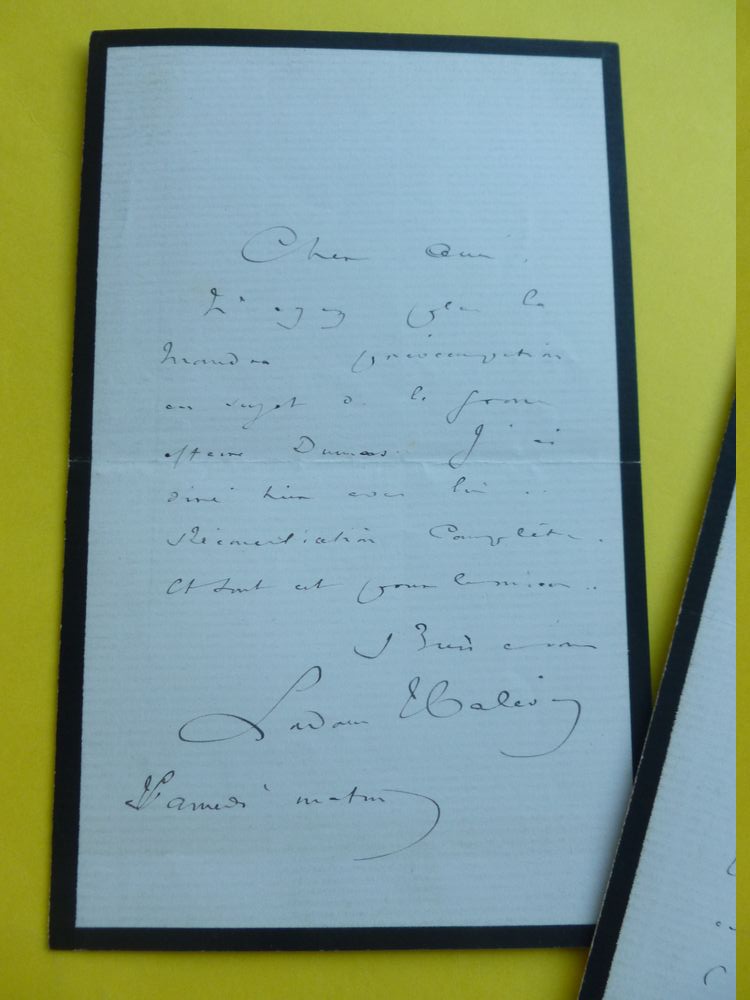 Cher ami,
N'ayez plus la
moindre préoccupation
au sujet de la grosse
affaire Dumas. J'ai
diné hier avec lui..
Réconciliation complète.
Et tout est pour le mieux..
Ludovic Halévy
Samedi matin